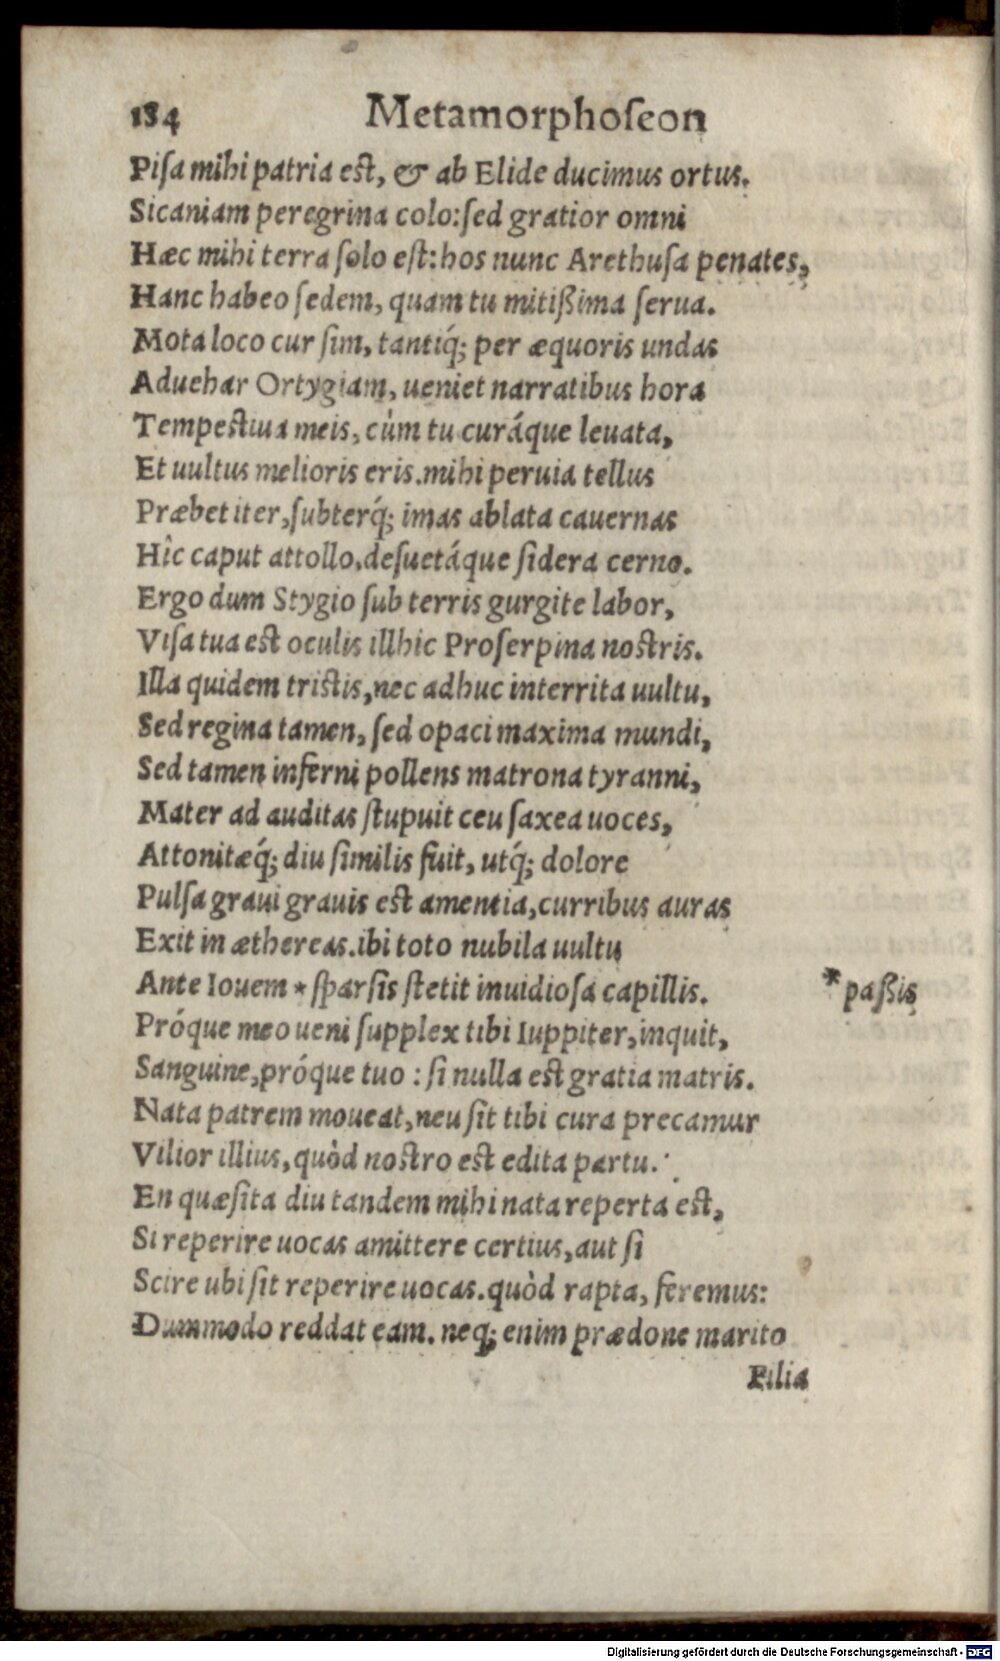 184 Metamorphoſeon
Piſa mihi patria eſt, & ab Elide ducimus ortus.
Sicaniam peregrina colo:ſed gratior omni
Hæc mihi terra ſolo eſt:hos nunc Arethuſa penates,
Hanc habeo ſedem, quam tu mitißima ſerua.
Mota loco cur ſim, tantiq́; per æquoris undas
Aduehar Ortygiam, ueniet narratibus hora
Tempeſtiua meis, cùm tu curáque leuata,
Et uultus melioris eris.mihi peruia tellus
Præbet iter,ſubterq́; imas ablata cauernas
Hîc caput attollo,deſuetáque ſidera cerno.
Ergo dum Stygio ſub terris gurgite labor,
Viſa tua eſt oculis illhic Proſerpina noſtris.
Illa quidem triſtis,nec adhuc interrita uultu,
Sed regina tamen, ſed opaci maxima mundi,
Sed tamen inferni pollens matrona tyranni,
Mater ad auditas ſtupuit ceu ſaxea uoces,
Attonitæq́; diu ſimilis fuit, utq́; dolore
Pulſa graui grauis eſt amentia,curribus auras
Exit in æthereas.ibi toto nubila uultu
Ante Iouem * ſparſis ſtetit inuidioſa capillis.
* paßis
Próque meo ueni ſupplex tibi Iuppiter,inquit,
Sanguine,próque tuo : ſi nulla eſt gratia matris.
Nata patrem moueat,neu ſit tibi cura precamur
Vilior illius,quòd noſtro eſt edita partu.
En quæſita diu tandem mihi nata reperta eſt,
Si reperire uocas amittere certius,aut ſi
Scire ubi ſit reperire uocas.quòd rapta, feremus:
Dummodo reddat eam. neq; enim prædone marito
Filia
Digitalisierung gefördert durch die Deutsche Forschungsgemeinschaft - DFG